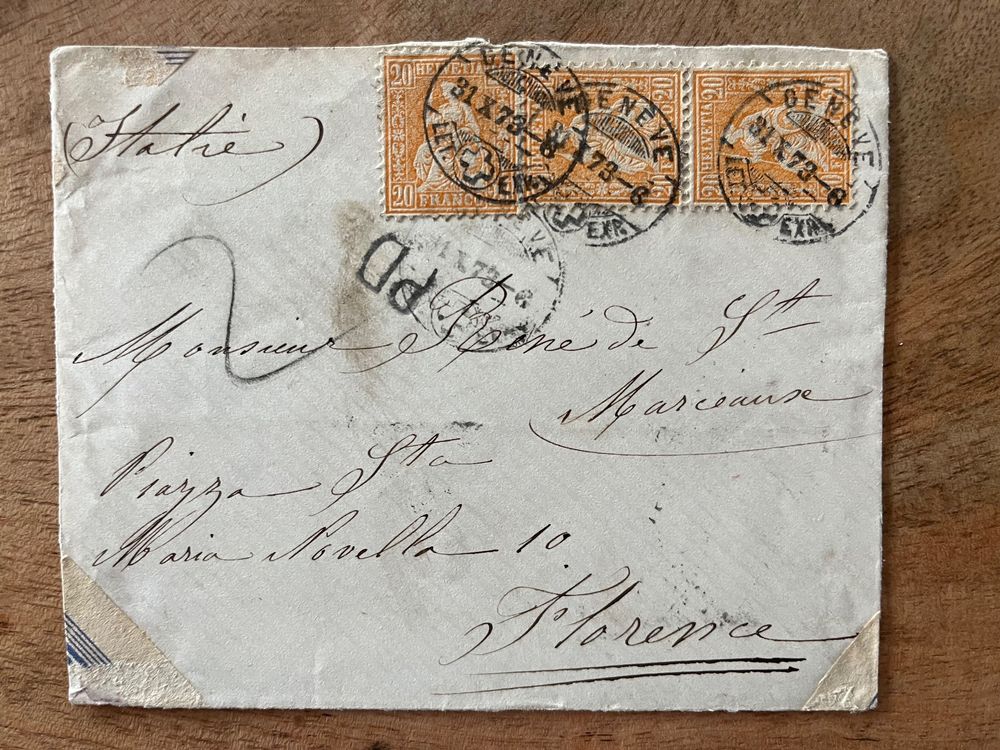 20 HELVETIA 20
20 FRANCO
GENÈVE
31 X 73–6
EXP.
GENÈVE
X 73–6
EXP.
20 HELVETIA 20
GENÈVE
31 X 73–6
EXP.
(Italie)
GENÈVE
X 73–6
PD
2
Monsieur René de St
Marceaux
Piazza Sta
Maria Novella 10
Florence